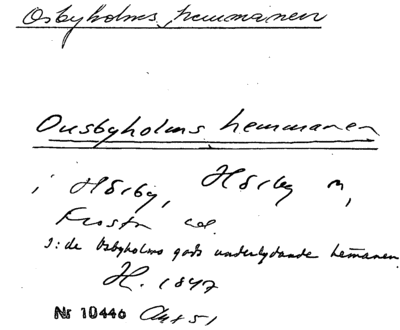 Osbyholms hemmanen
Ousbyholms hemmanen
i Hörby, Hörby m,
Frosta
ɔ: de Osbyholms gods underlydande hemanen
H. 1847
Nr 10446